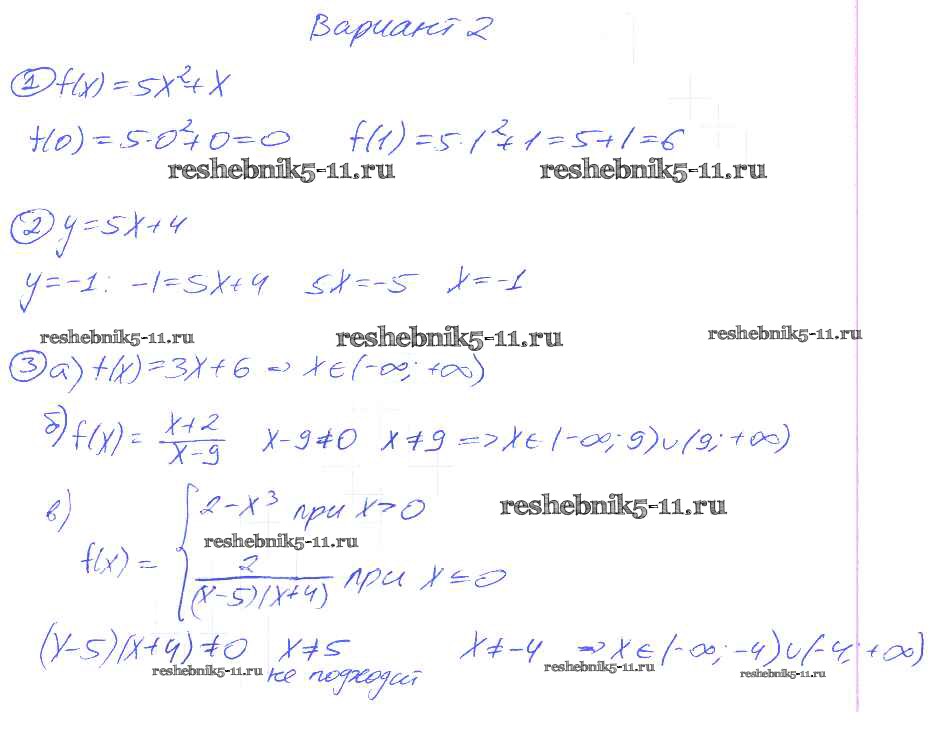 Вариант 2
① f(x) = 5x² + x
f(0) = 5·0² + 0 = 0 f(1) = 5·1² + 1 = 5 + 1 = 6
reshebnik5-11.ru reshebnik5-11.ru
② y = 5x + 4
y = -1: -1 = 5x + 4 5x = -5 x = -1
reshebnik5-11.ru reshebnik5-11.ru reshebnik5-11.ru
③ а) f(x) = 3x + 6 ⇒ x ∈ (-∞; +∞)
б) f(x) = (x+2)/(x-9) x - 9 ≠ 0 x ≠ 9 => x ∈ (-∞; 9) ∪ (9; +∞)
в) f(x) = { 2 - x³ при x > 0
reshebnik5-11.ru
reshebnik5-11.ru
2/((x-5)(x+4)) при x ≤ 0
(x-5)(x+4) ≠ 0 x ≠ 5 x ≠ -4 ⇒ x ∈ (-∞; -4) ∪ (-4; +∞)
не подходит
reshebnik5-11.ru reshebnik5-11.ru reshebnik5-11.ru